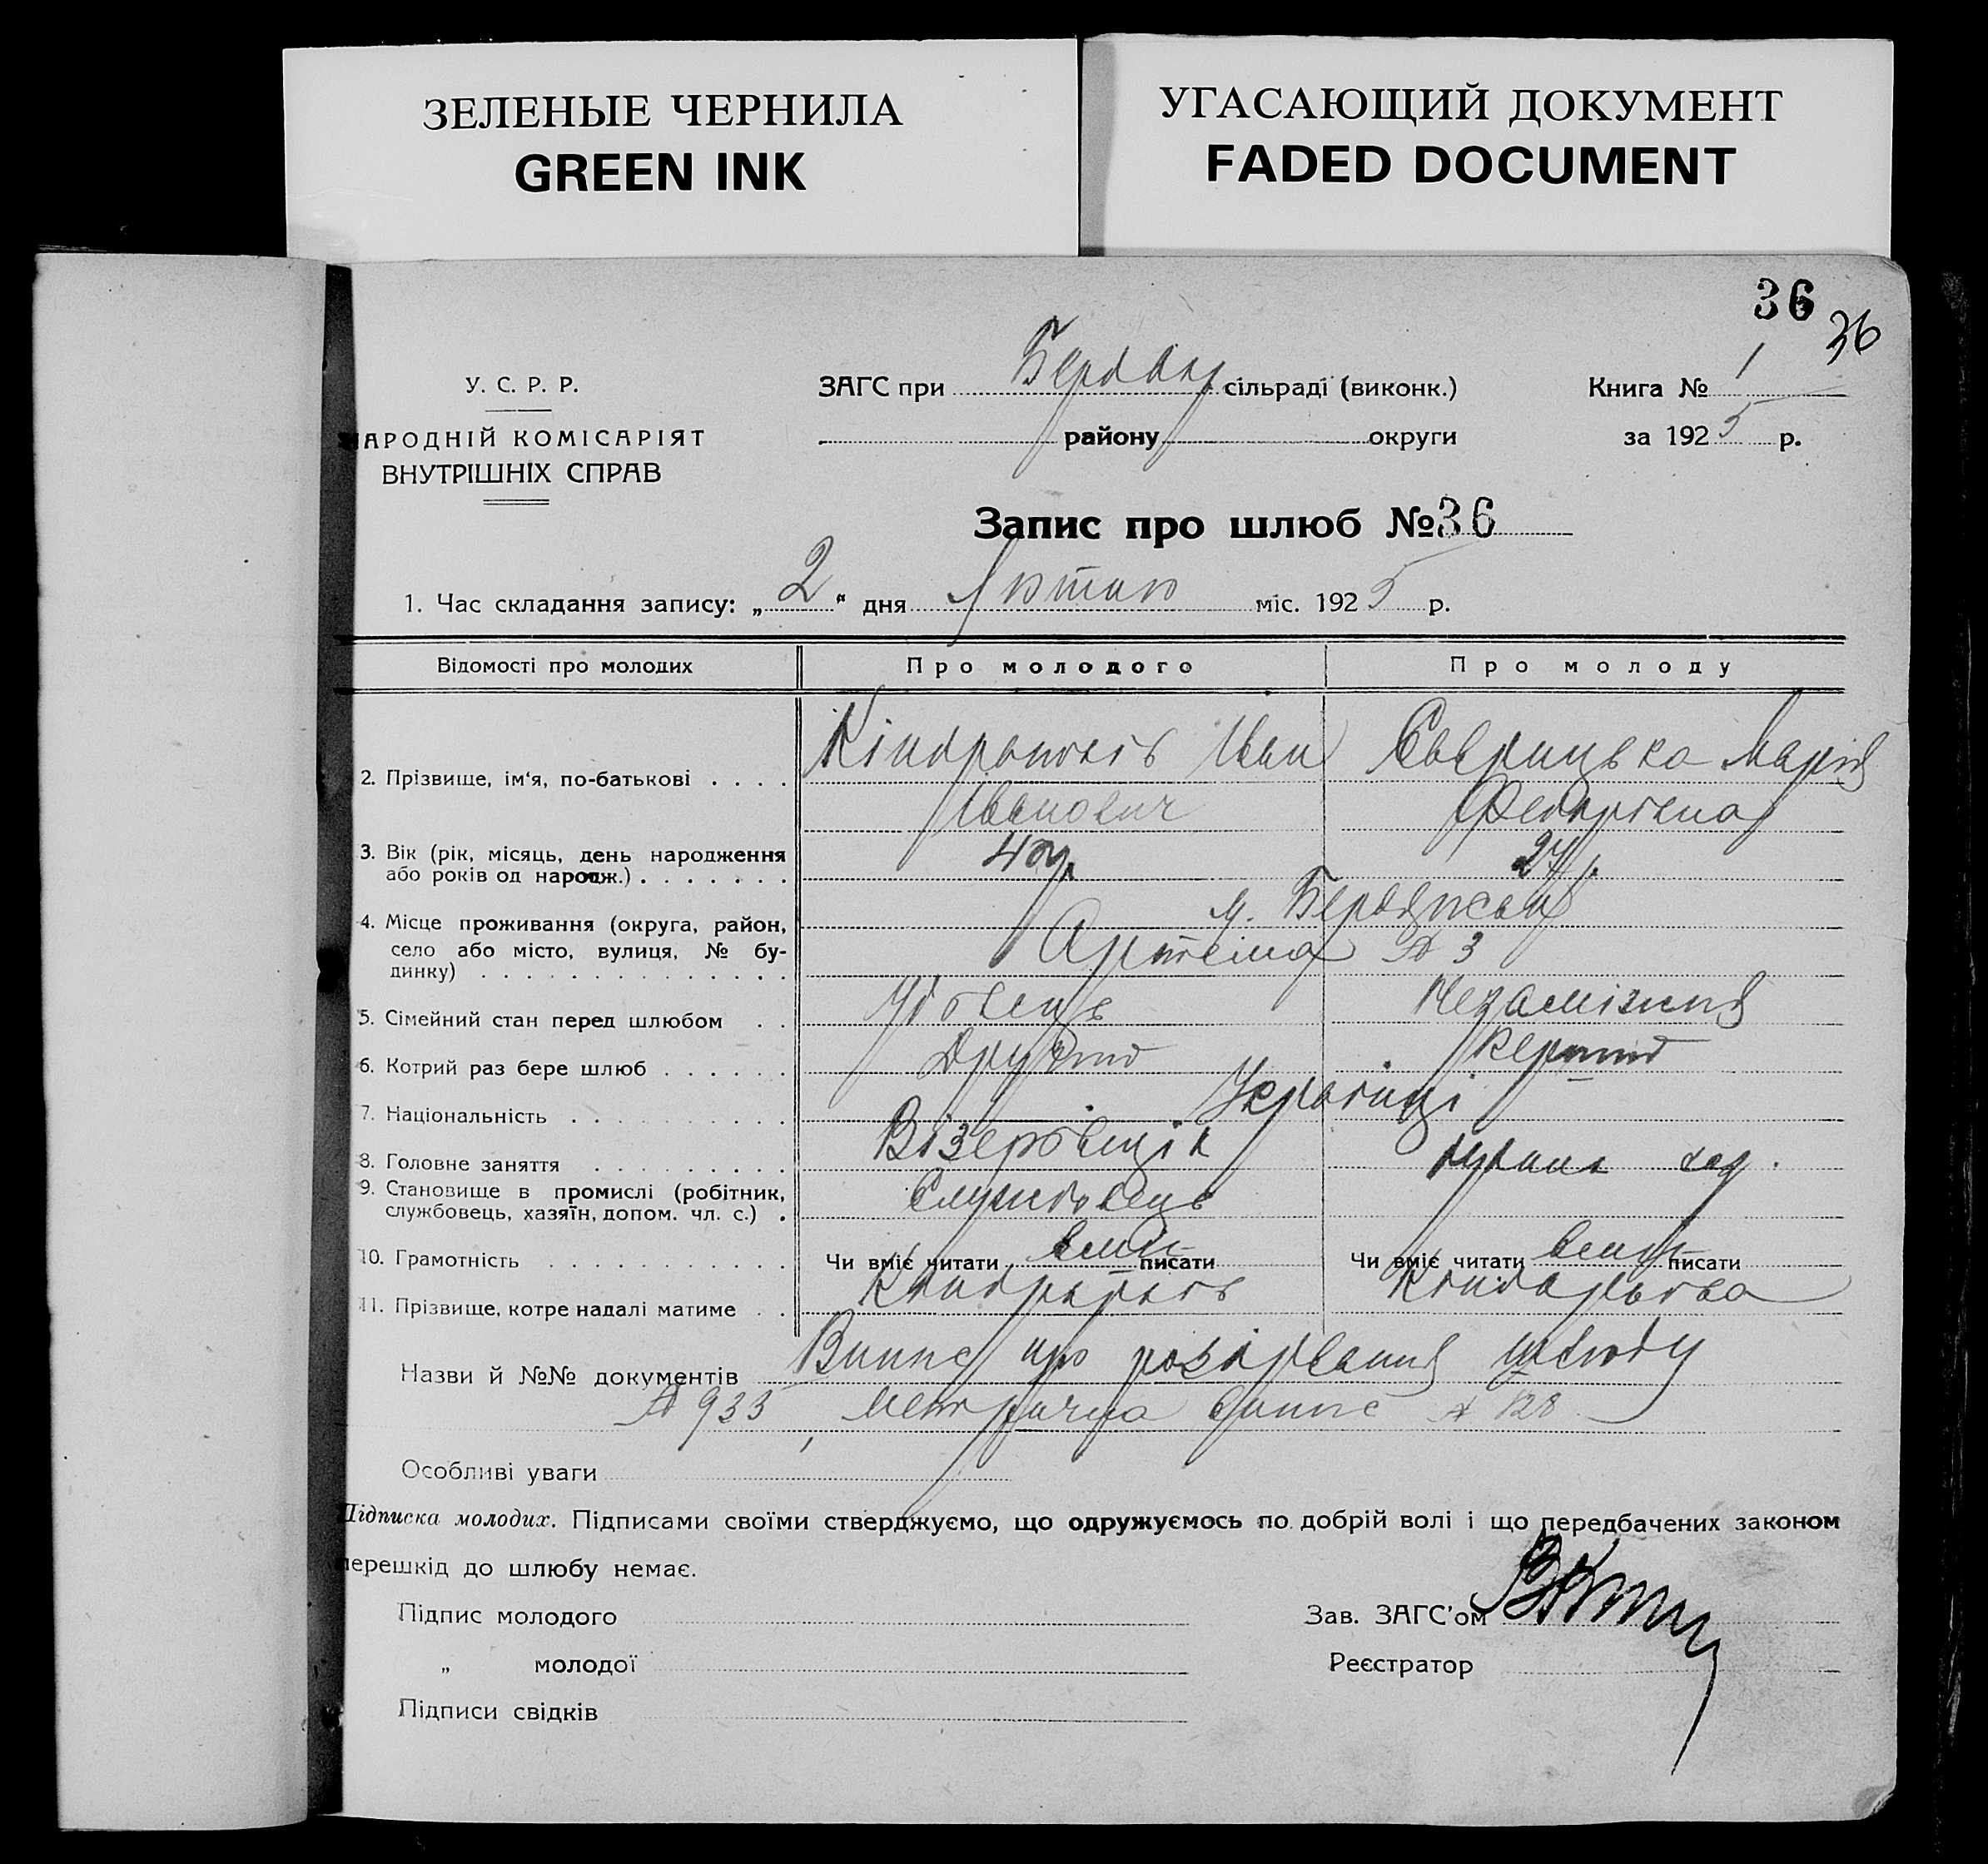 ЗЕЛЕНЫЕ ЧЕРНИЛА
GREEN INK
УГАСАЮЩИЙ ДОКУМЕНТ
FADED DOCUMENT
36
36
У. С. Р. Р.
НАРОДНІЙ КОМІСАРІЯТ
ВНУТРІШНІХ СПРАВ
ЗАГС при сільраді (виконк.)
району округи
Книга № 1
за 1925 р.
Запис про шлюб № 36
1. Час складання запису: „ 2 “ дня Лютого міс. 1925 р.
Відомості про молодих Про молодого Про молоду
2. Прізвище, ім‘я, по-батькові . . . . Іван Марія
Іванович Федорівна
3. Вік (рік, місяць, день народження
або років од народж.) . . . . . . .
4. Місце проживання (округа, район, м.
село або місто, вулиця, № бу- Артема № 3
динку) . . . . . . . . . . . . . .
5. Сімейний стан перед шлюбом . . Удовець Незаміжня
6. Котрий раз бере шлюб . . . . . .
7. Національність . . . . . . . . . . Українці
8. Головне заняття . . . . . . . . .
9. Становище в промислі (робітник,
службовець, хазяїн, допом. чл. с.) . Службовець
10. Грамотність . . . . . . . . . . . Чи вміє читати вміє писати Чи вміє читати вміє писати
11. Прізвище, котре надалі матиме . .
Назви й №№ документів Випис про шлюбу
№ 933, Метрична випис № 128
Особливі уваги
Підписка молодих. Підписами своїми стверджуємо, що одружуємось по добрій волі і що передбачених законом
перешкід до шлюбу немає.
Підпис молодого
„ молодої
Підписи свідків
Зав. ЗАГС'ом
Реєстратор